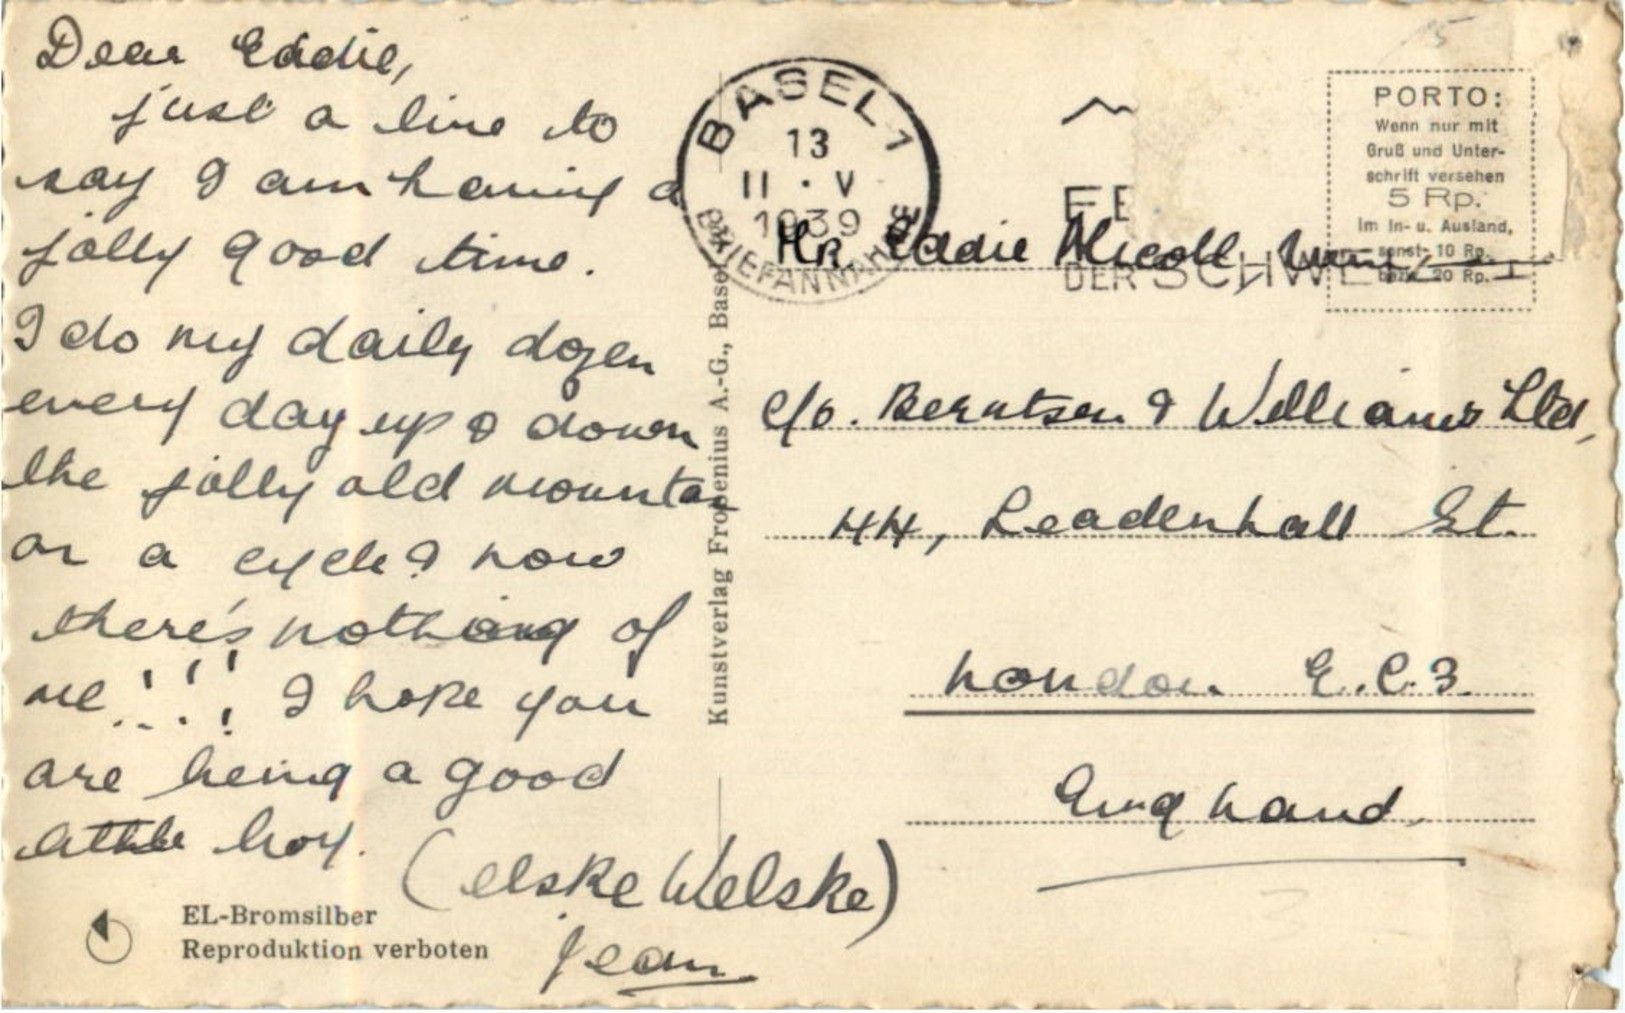 Dear Eddie,
just a line to
say I am having a
jolly good time.
I do my daily dozen
every day up & down
the jolly old mountain
on a cycle & now
there's nothing of
me!!! I hope you
are being a good
little boy.
(elske Welske)
Jean
EL-Bromsilber
Reproduktion verboten
Kunstverlag Frobenius A.-G., Basel
BASEL 1
13
11 · V
1939
BRIEFANNAHME
DER SCHWEIZ
PORTO:
Wenn nur mit
Gruß und Unter-
schrift versehen
5 Rp.
Im In- u. Ausland,
sonst 10 Rp.
bezw. 20 Rp.
Mr. Eddie Nicoll,
c/o. Berntsen & Williams Ltd,
44, Leadenhall St.
London E.C.3.
England.